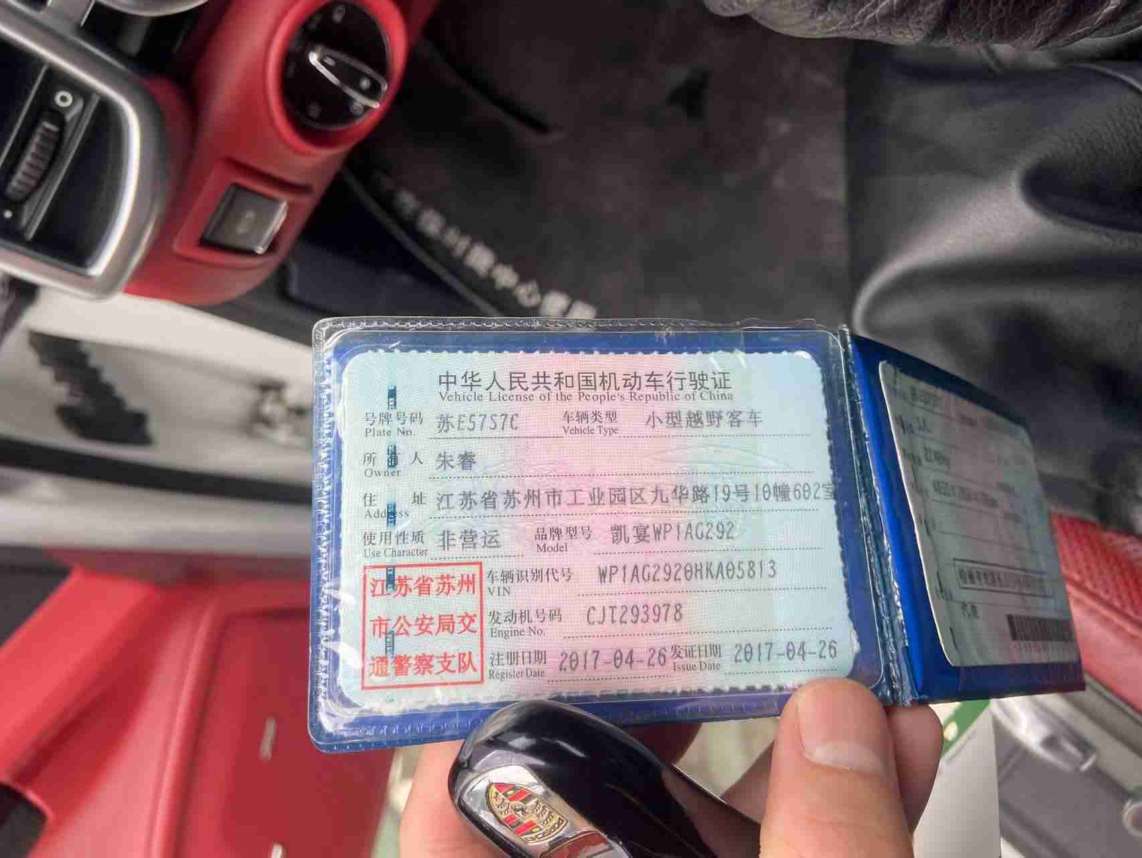 中华人民共和国机动车行驶证
Vehicle License of the People's Republic of China
号牌号码 苏E57S7C 车辆类型 小型越野客车
Plate No. Vehicle Type
所有人 朱睿
Owner
住址 江苏省苏州市工业园区九华路19号10幢602室
Address
使用性质 非营运 品牌型号 凯宴WP1AG292
Use Character Model
车辆识别代号 WP1AG2920HKA05813
VIN
发动机号码 CJT293978
Engine No.
注册日期 2017-04-26 发证日期 2017-04-26
Register Date Issue Date
江苏省苏州
市公安局交
通警察支队